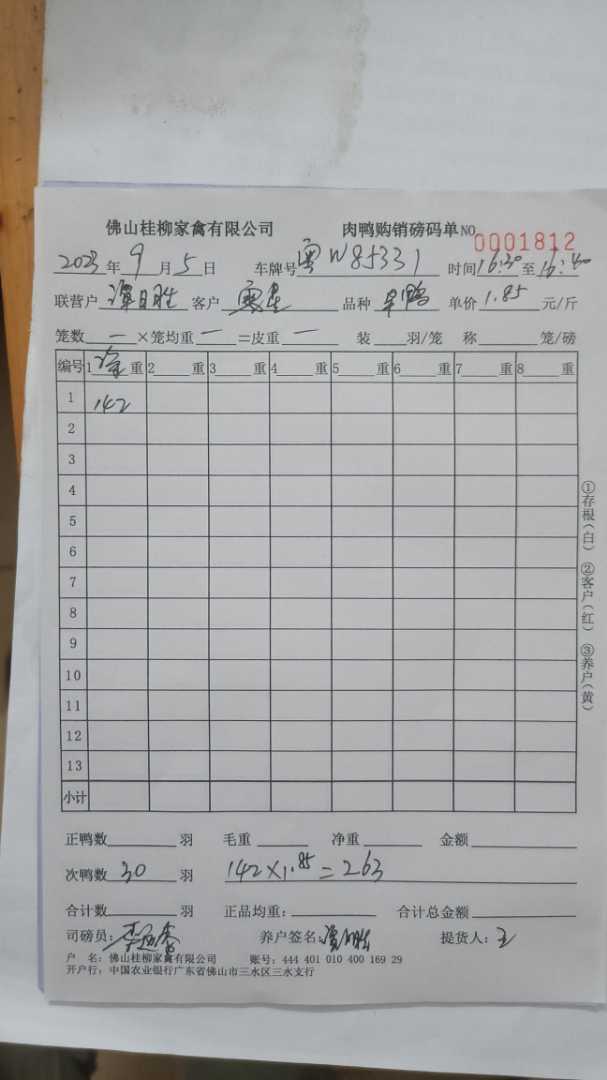 佛山桂柳家禽有限公司 肉鸭购销磅码单 NO 0001812
2023年9月5日 车牌号 粤W85331 时间16:30至16:40
联营户 谭日胜 客户 品种 单价1.85元/斤
笼数一×笼均重一=皮重一 装 羽/笼 称 笼/磅
编号 1 重 2 重 3 重 4 重 5 重 6 重 7 重 8 重
1 142
2
3
4
5
6
7
8
9
10
11
12
13
小计
①存根(白) ②客户(红) ③养户(黄)
正鸭数 羽 毛重 净重 金额
次鸭数 30 羽 142×1.85=263
合计数 羽 正品均重: 合计总金额
司磅员: 养户签名: 谭日胜 提货人: 王
户 名: 佛山桂柳家禽有限公司 账号: 444 401 010 400 169 29
开户行: 中国农业银行广东省佛山市三水区三水支行